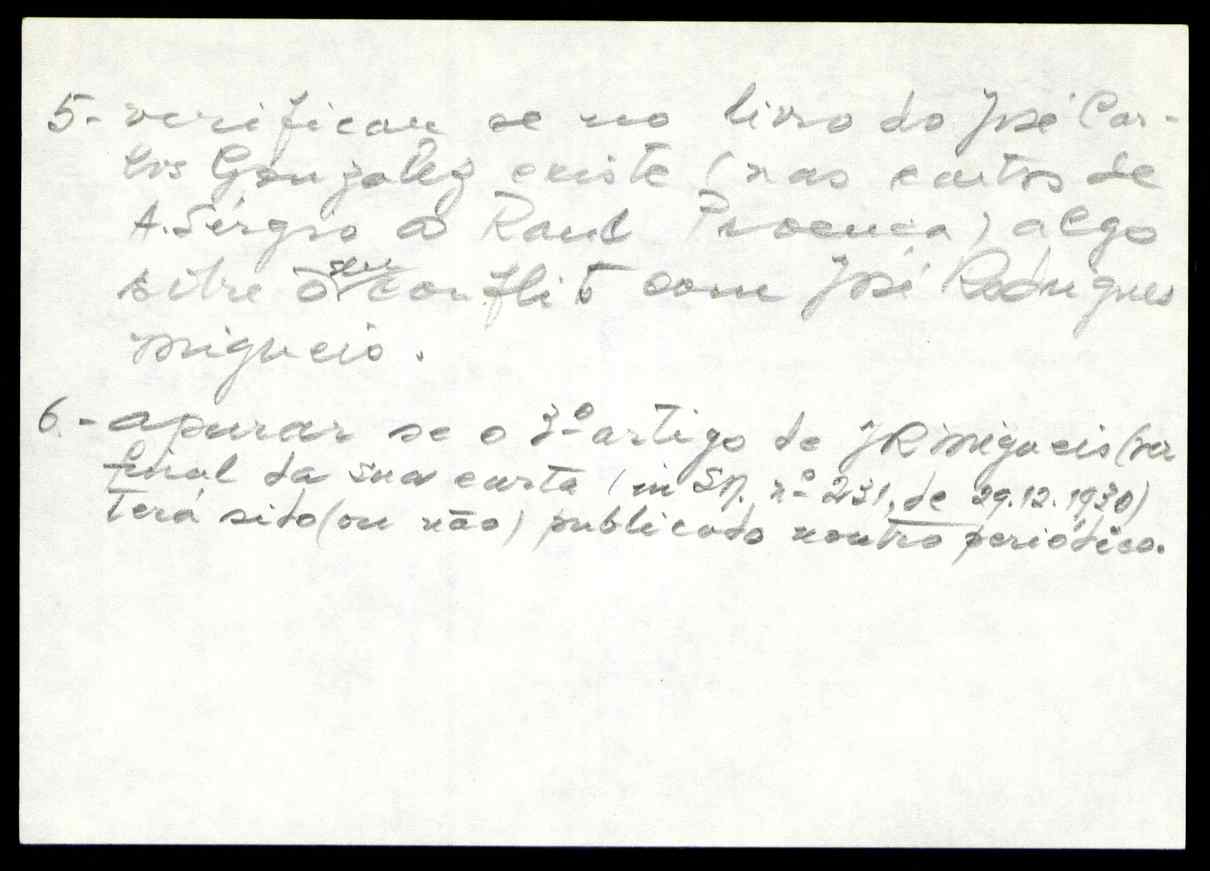 5- verificar se no livro do José Car-
los González existe (nas cartas de
A. Sérgio a Raul Proença) algo
sobre o seu conflito com José Rodrigues
Migueis.
6.- apurar se o 3º artigo de JR Migueis (ver
final da sua carta (in SN. nº 231, de 29.12.1930)
terá sido (ou não) publicado noutro periódico.